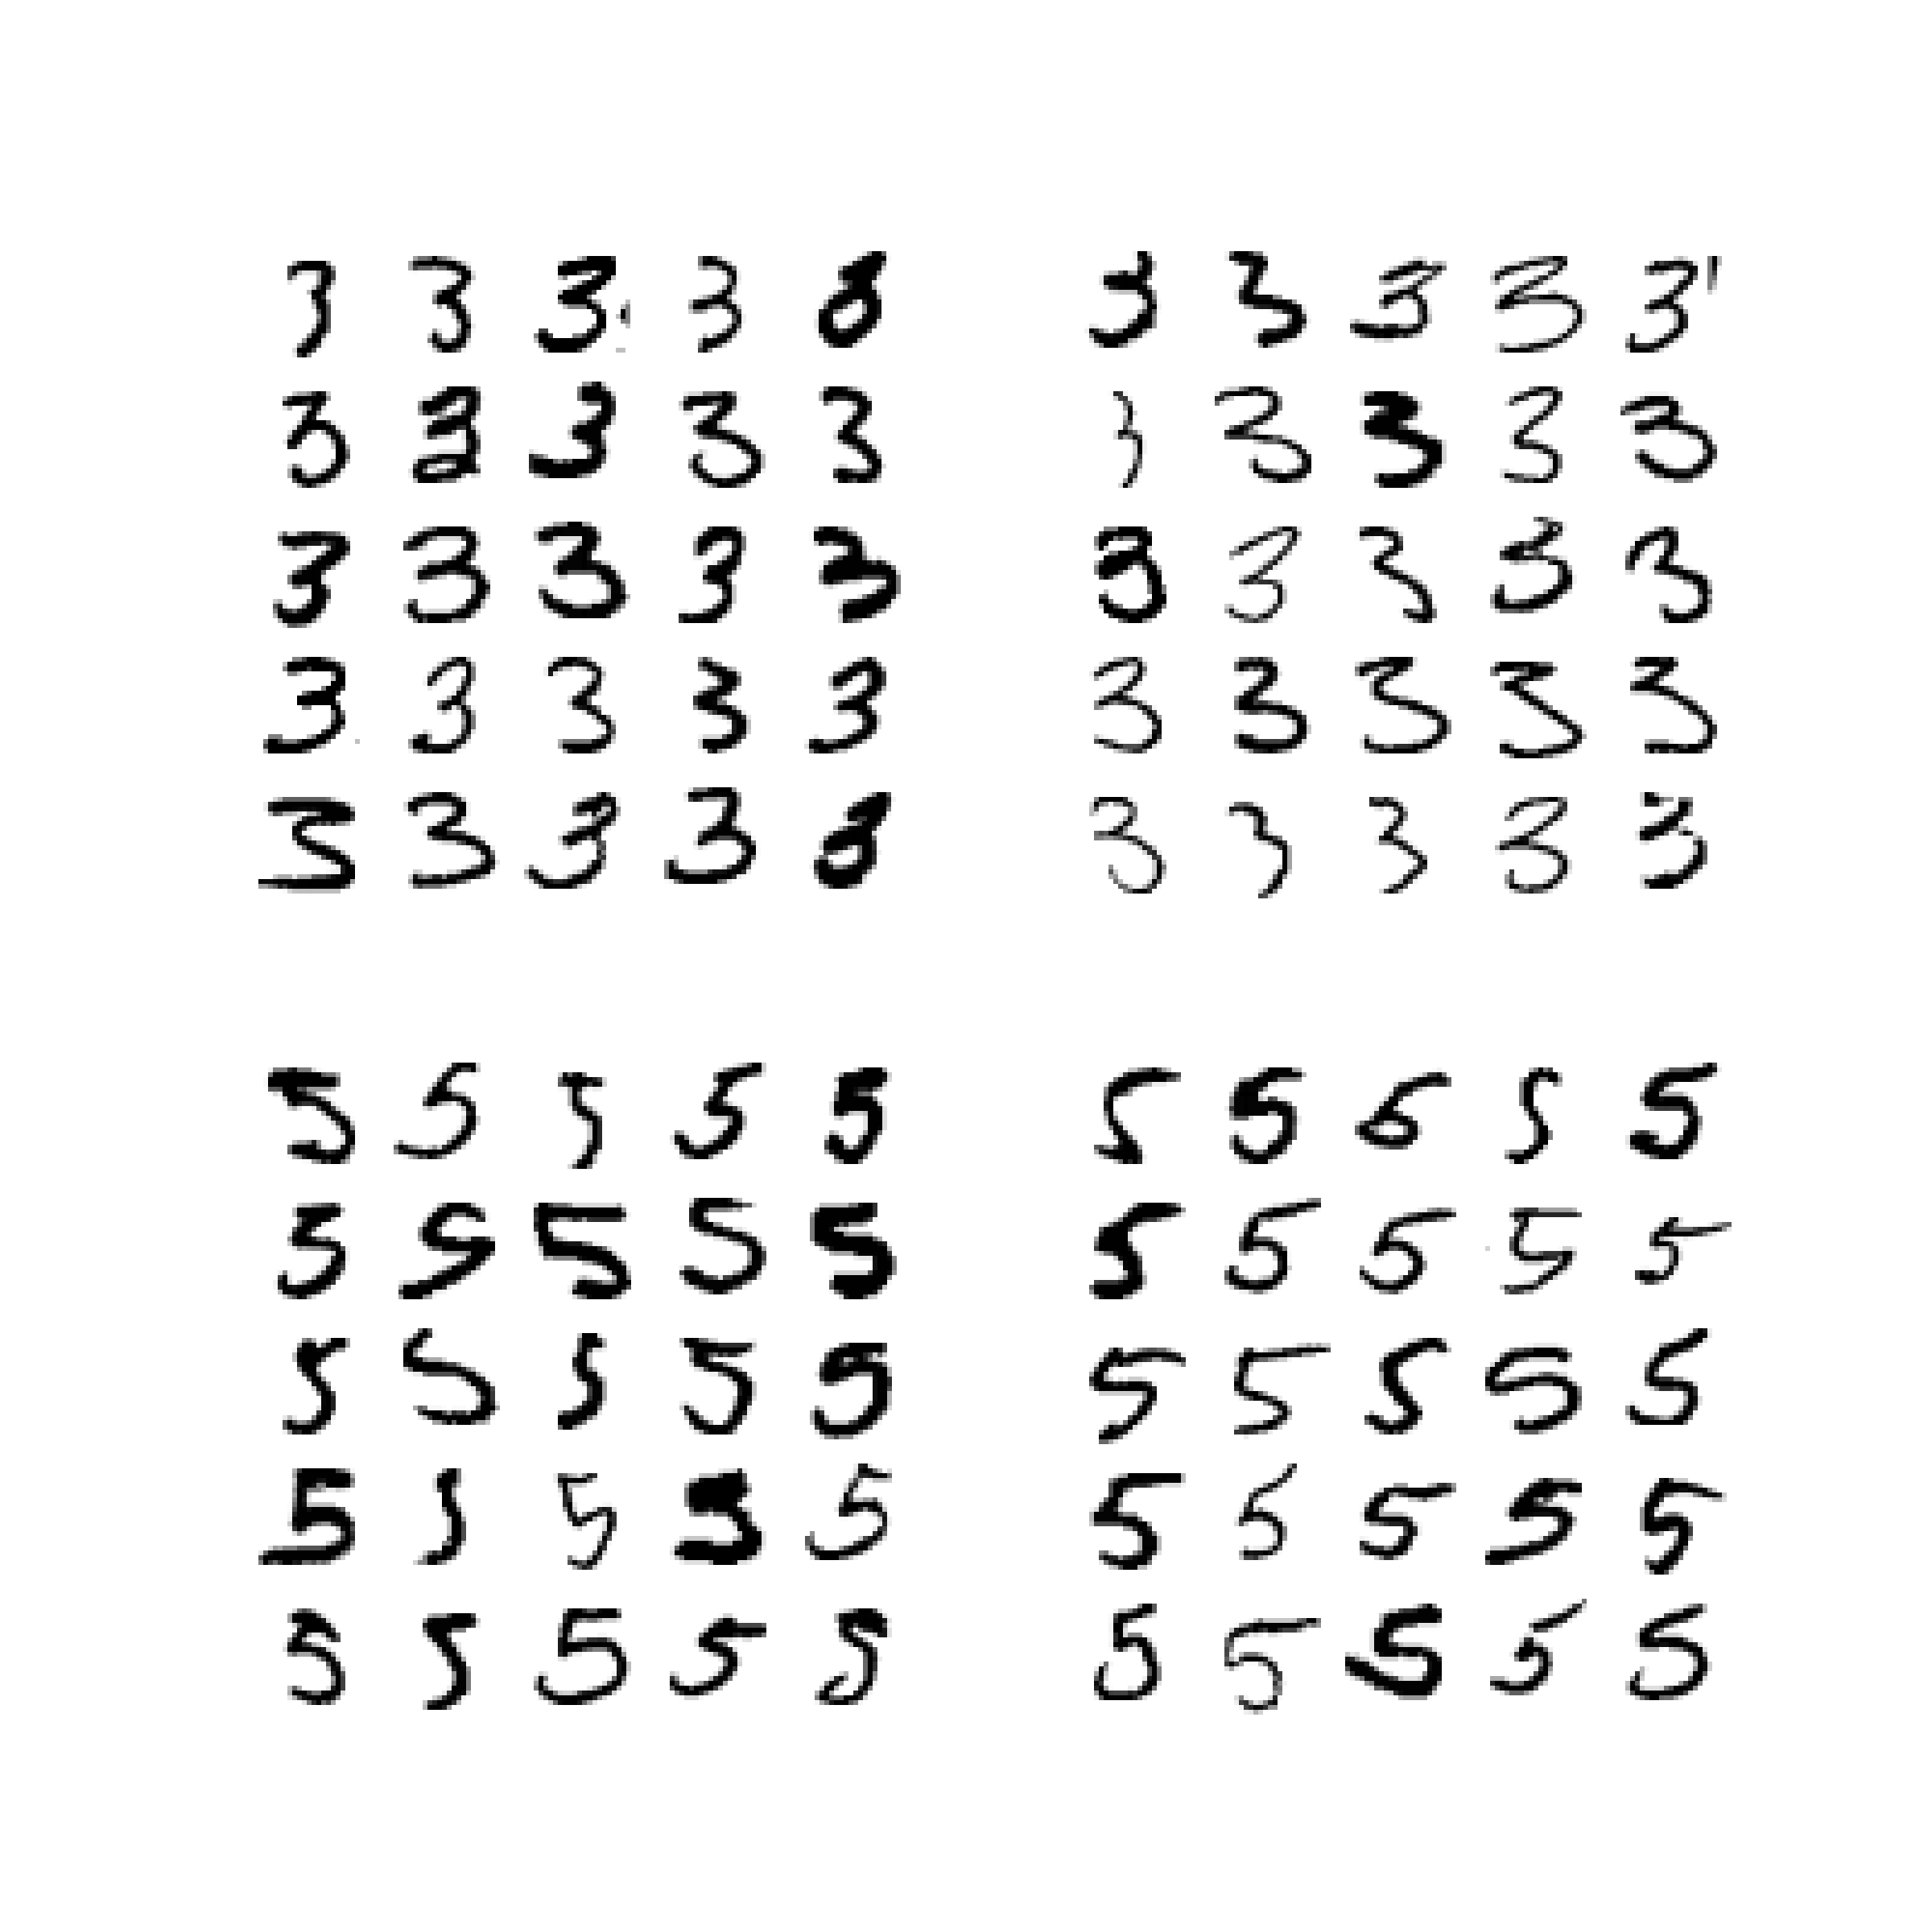 3 3 3 3 3 3 3 3 3 3'
3 3 3 3 3 3 3 3 3 3
3 3 3 3 3 3 3 3 3 3
3 3 3 3 3 3 3 3 3 3
3 3 3 3 3 3 3 3 3 3
5 5 5 5 5 5 5 5 5 5
5 5 5 5 5 5 5 5 5 5
5 5 5 5 5 5 5 5 5 5
5 5 5 5 5 5 5 5 5 5
5 5 5 5 5 5 5 5 5 5